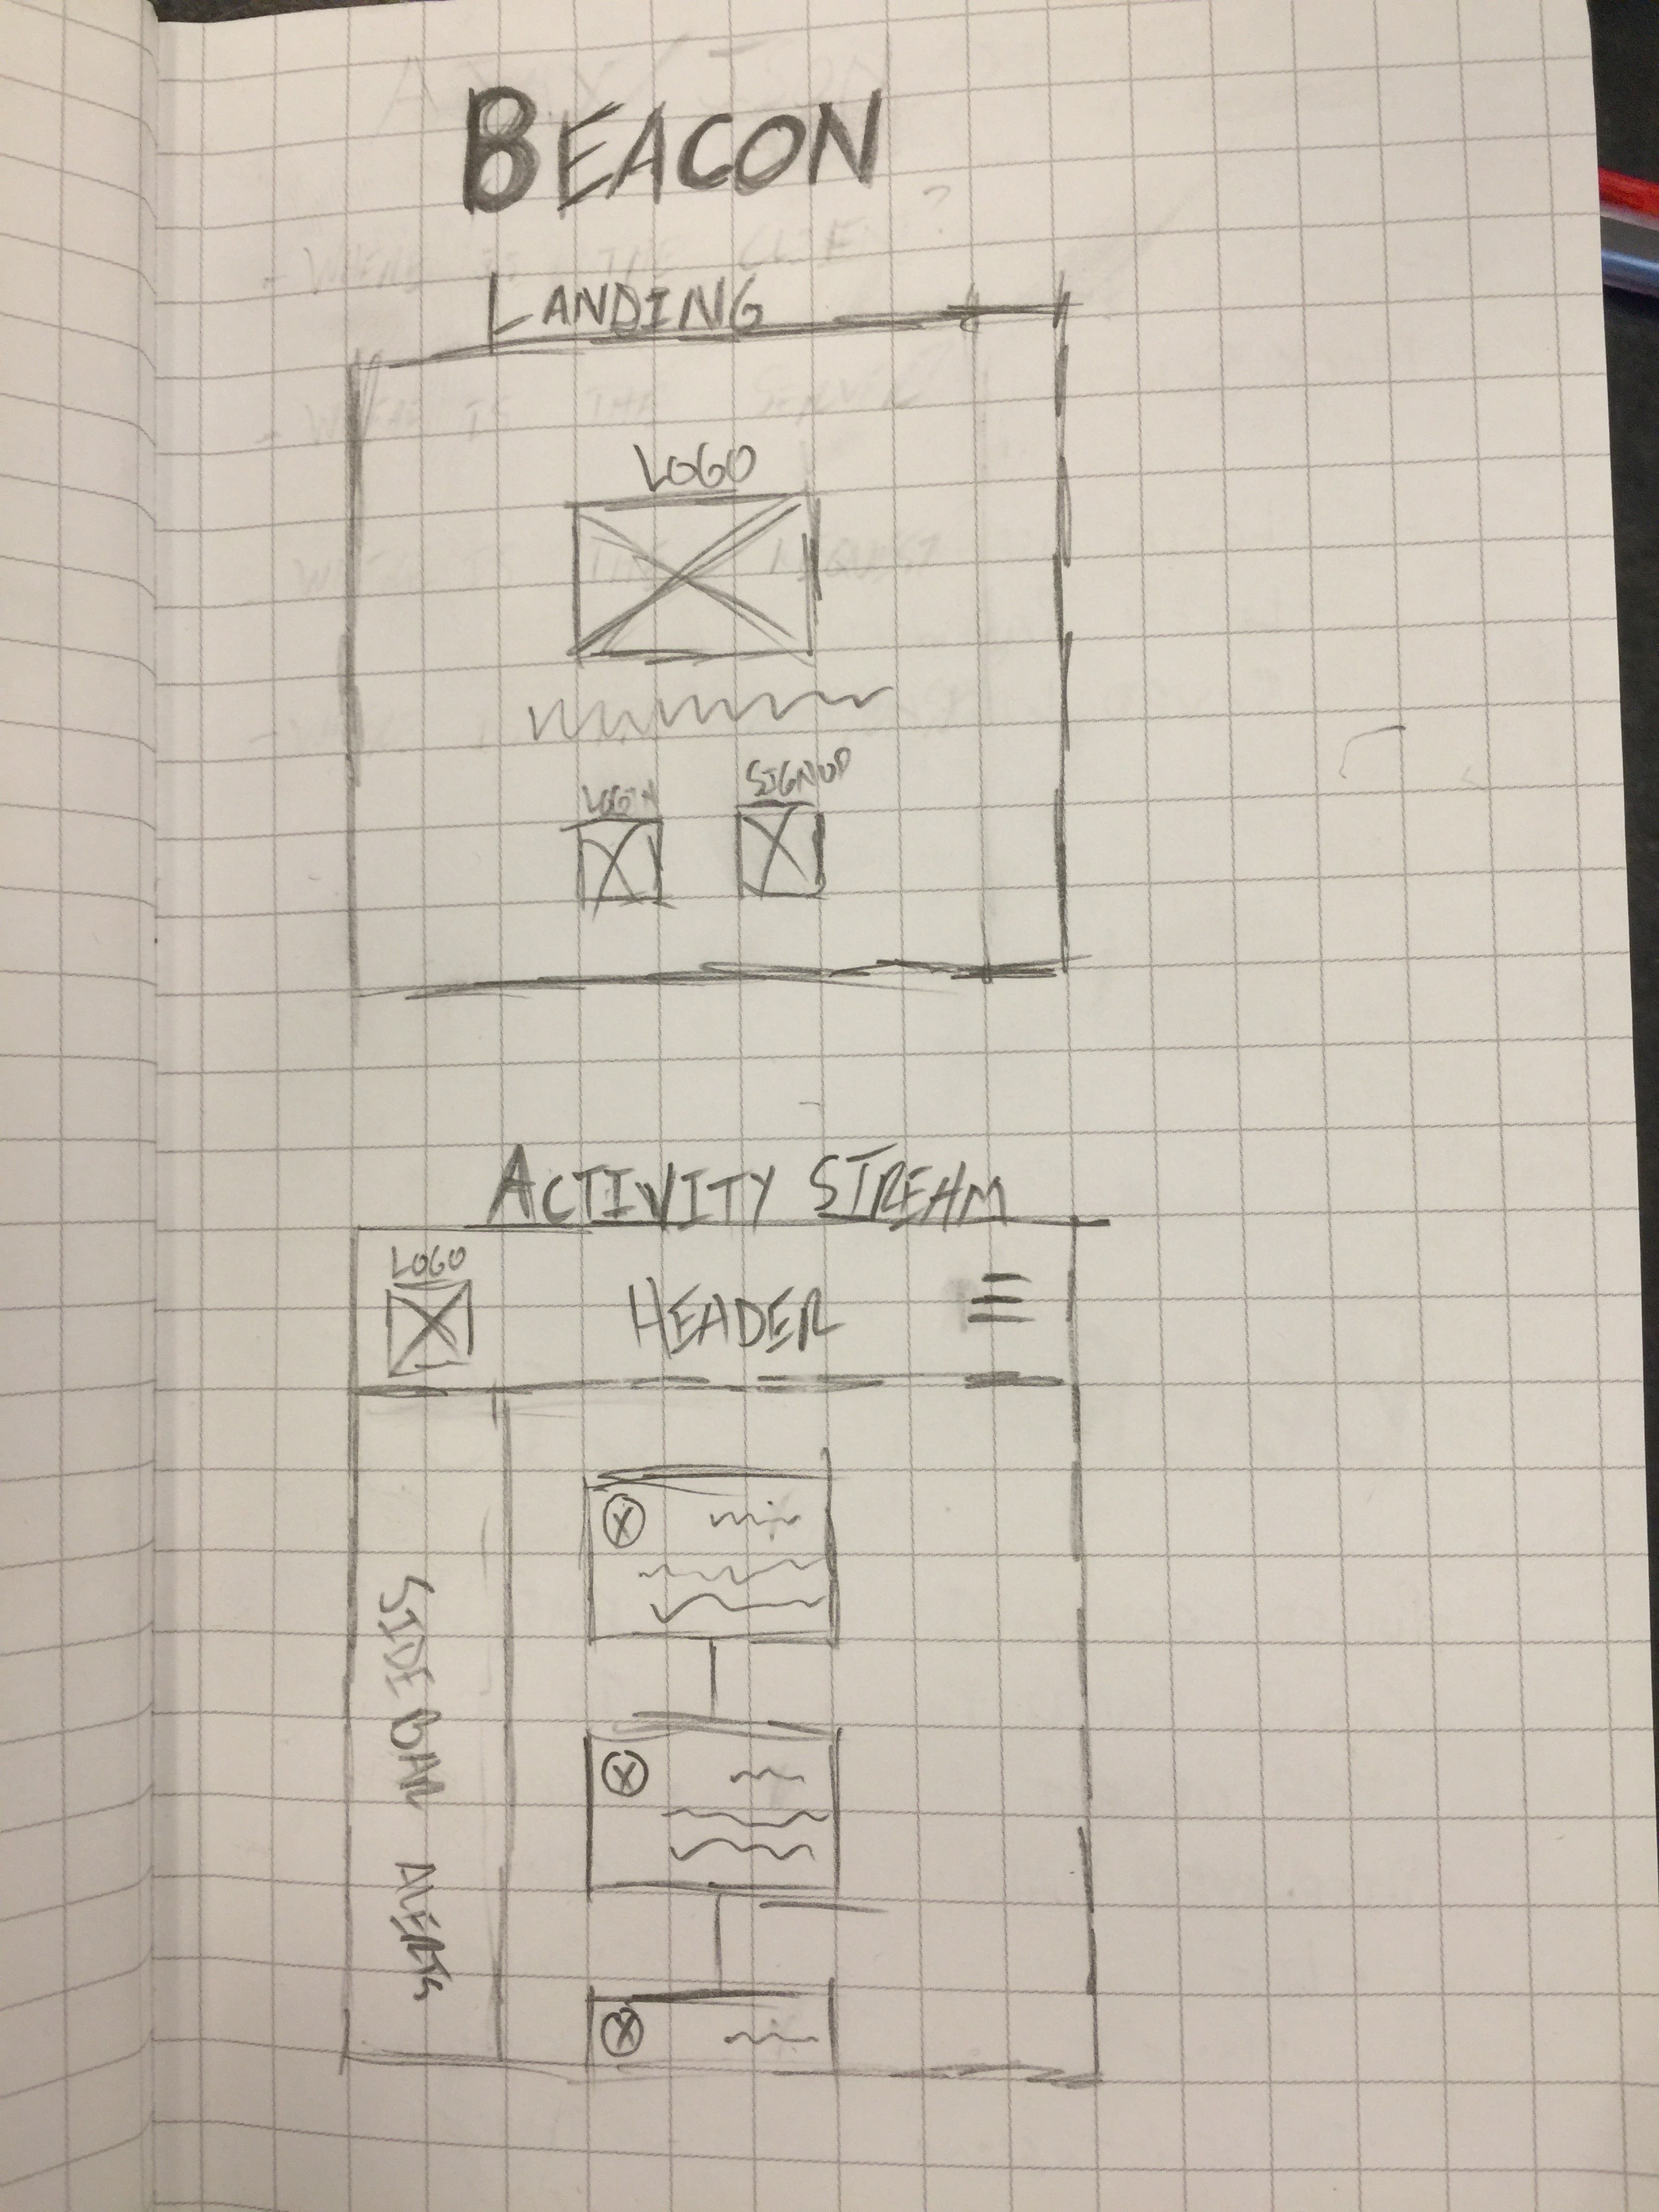 BEACON
LANDING
LOGO
LOGIN
SIGNUP
ACTIVITY STREAM
LOGO
HEADER
SIDEBAR ALERTS